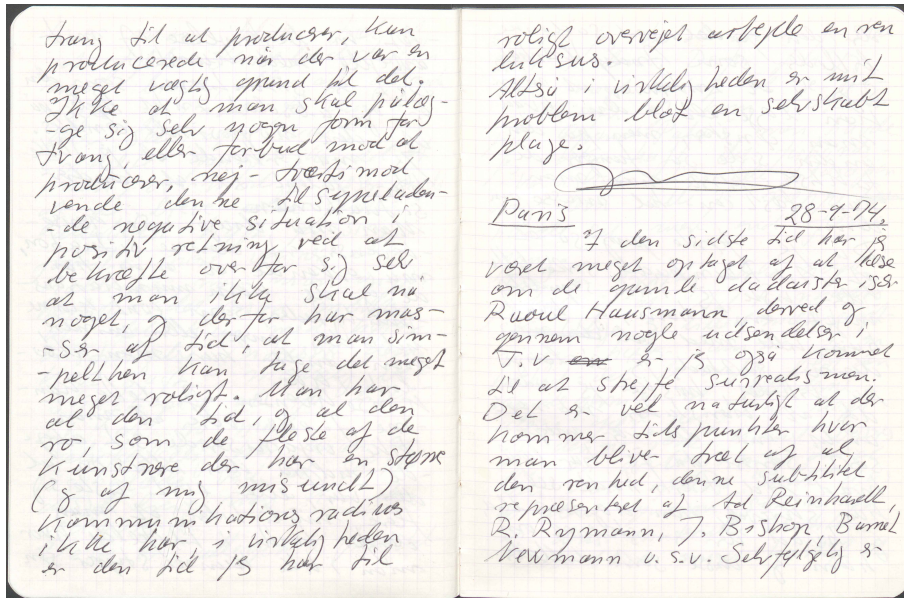 trang til at producere, kun
producerede når der var en
meget vægtig grund til det.
Ikke at man skal pålæg-
-ge sig selv nogen form for
tvang, eller forbud mod at
producere, nej - tværtimod
vende denne tilsyneladen-
-de negative situation i
positiv retning ved at
bekræfte overfor sig selv
at man ikke skal nå
noget, og derfor har mas-
-ser af tid, at man sim-
-pelthen kan tage det meget
meget roligt. Man har
al den tid, og al den
ro, som de fleste af de
kunstnere der har en større
(og af mig misundt)
kommunikationsradius
ikke har, i virkeligheden
er den tid jeg har til
roligt overvejet arbejde en ren
luksus.
Altså i virkeligheden er mit
problem blot en selvskabt
plage.
Paris 28-9-74.
I den sidste tid har jeg
været meget optaget af at læse
om de gamle dadaister især
Raoul Hausmann, derved og
gennem nogle udsendelser i
T.V er jeg også kommet
til at strejfe surrealismen.
Det er vel naturligt at der
kommer tidspunkter hvor
man bliver træt af al
den renhed, denne subtilitet
repræsenteret af Ad Reinhardt,
R. Rymann, J. Bishop, Barnet
Newmann u.s.v. Selvfølgelig er